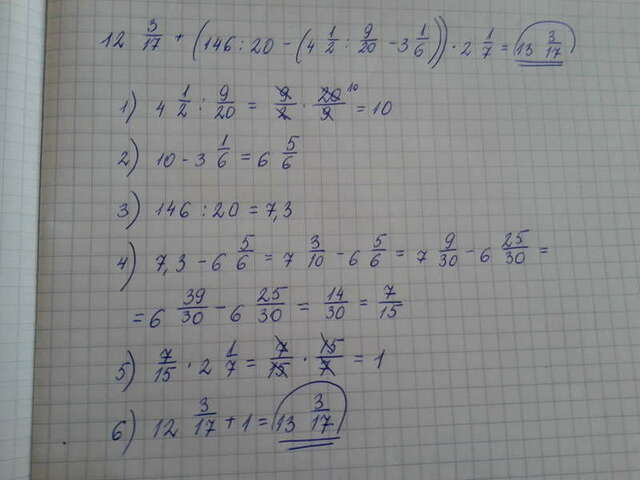 12 3/17 + (146 : 20 - (4 1/2 : 9/20 - 3 1/6)) · 2 1/7 = 13 3/17
1) 4 1/2 : 9/20 = 9/2 · 20/9 10 = 10
2) 10 - 3 1/6 = 6 5/6
3) 146 : 20 = 7,3
4) 7,3 - 6 5/6 = 7 3/10 - 6 5/6 = 7 9/30 - 6 25/30 =
= 6 39/30 - 6 25/30 = 14/30 = 7/15
5) 7/15 · 2 1/7 = 7/15 · 15/7 = 1
6) 12 3/17 + 1 = 13 3/17